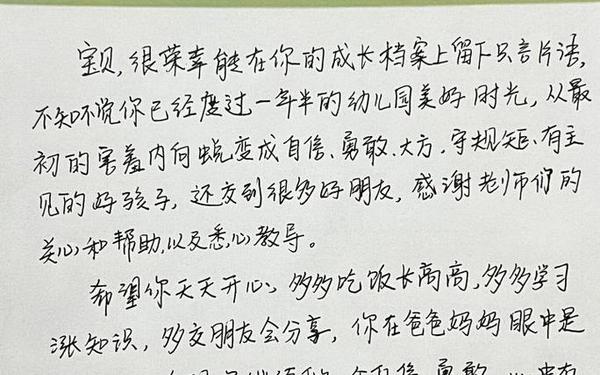 宝贝,很荣幸能在你的成长档案上留下只言片语,
不知不觉你已经度过一年半的幼儿园美好时光,从最
初的害羞内向蜕变成自信、勇敢、大方、守规矩、有主
见的好孩子,还交到很多好朋友,感谢老师们的
关心和帮助,以及悉心教导。
希望你天天开心,多多吃饭长高高,多多学习
涨知识,多交朋友会分享,你在爸爸妈妈眼中是